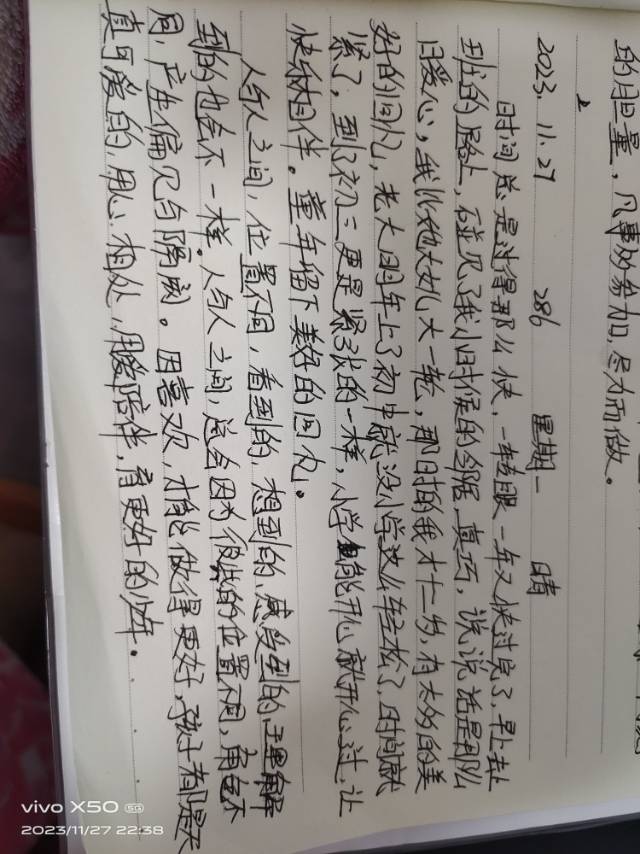 的胆量，凡事多参加，尽力而做。
2023.11.27 286 星期一 晴
时间总是过得那么快，一转眼一年又快过完了，早上去上
班的路上，碰见了我小时候的邻居，真巧，说说话是那么
日爱心，我比她大儿大一轮，那时的我才十二岁，有太多的美
好的回忆，老大明年上了初中就没小学这么轻松了，时间就
紧了，到了初二更是紧张的一样，小学能开心就开心过，让
快乐相伴。童年留下美好的回忆。
人与人之间，位置不同，看到的，想到的，感受到的，理解
到的也会不一样。人与人之间，总会因为彼此的位置不同，角色不
同，产生偏见与隔阂。因喜欢，才能做得更好，孩子都是天
真可爱的，用心相处，用爱陪伴，育更好的少年。
vivo X50 5G
2023/11/27 22:38